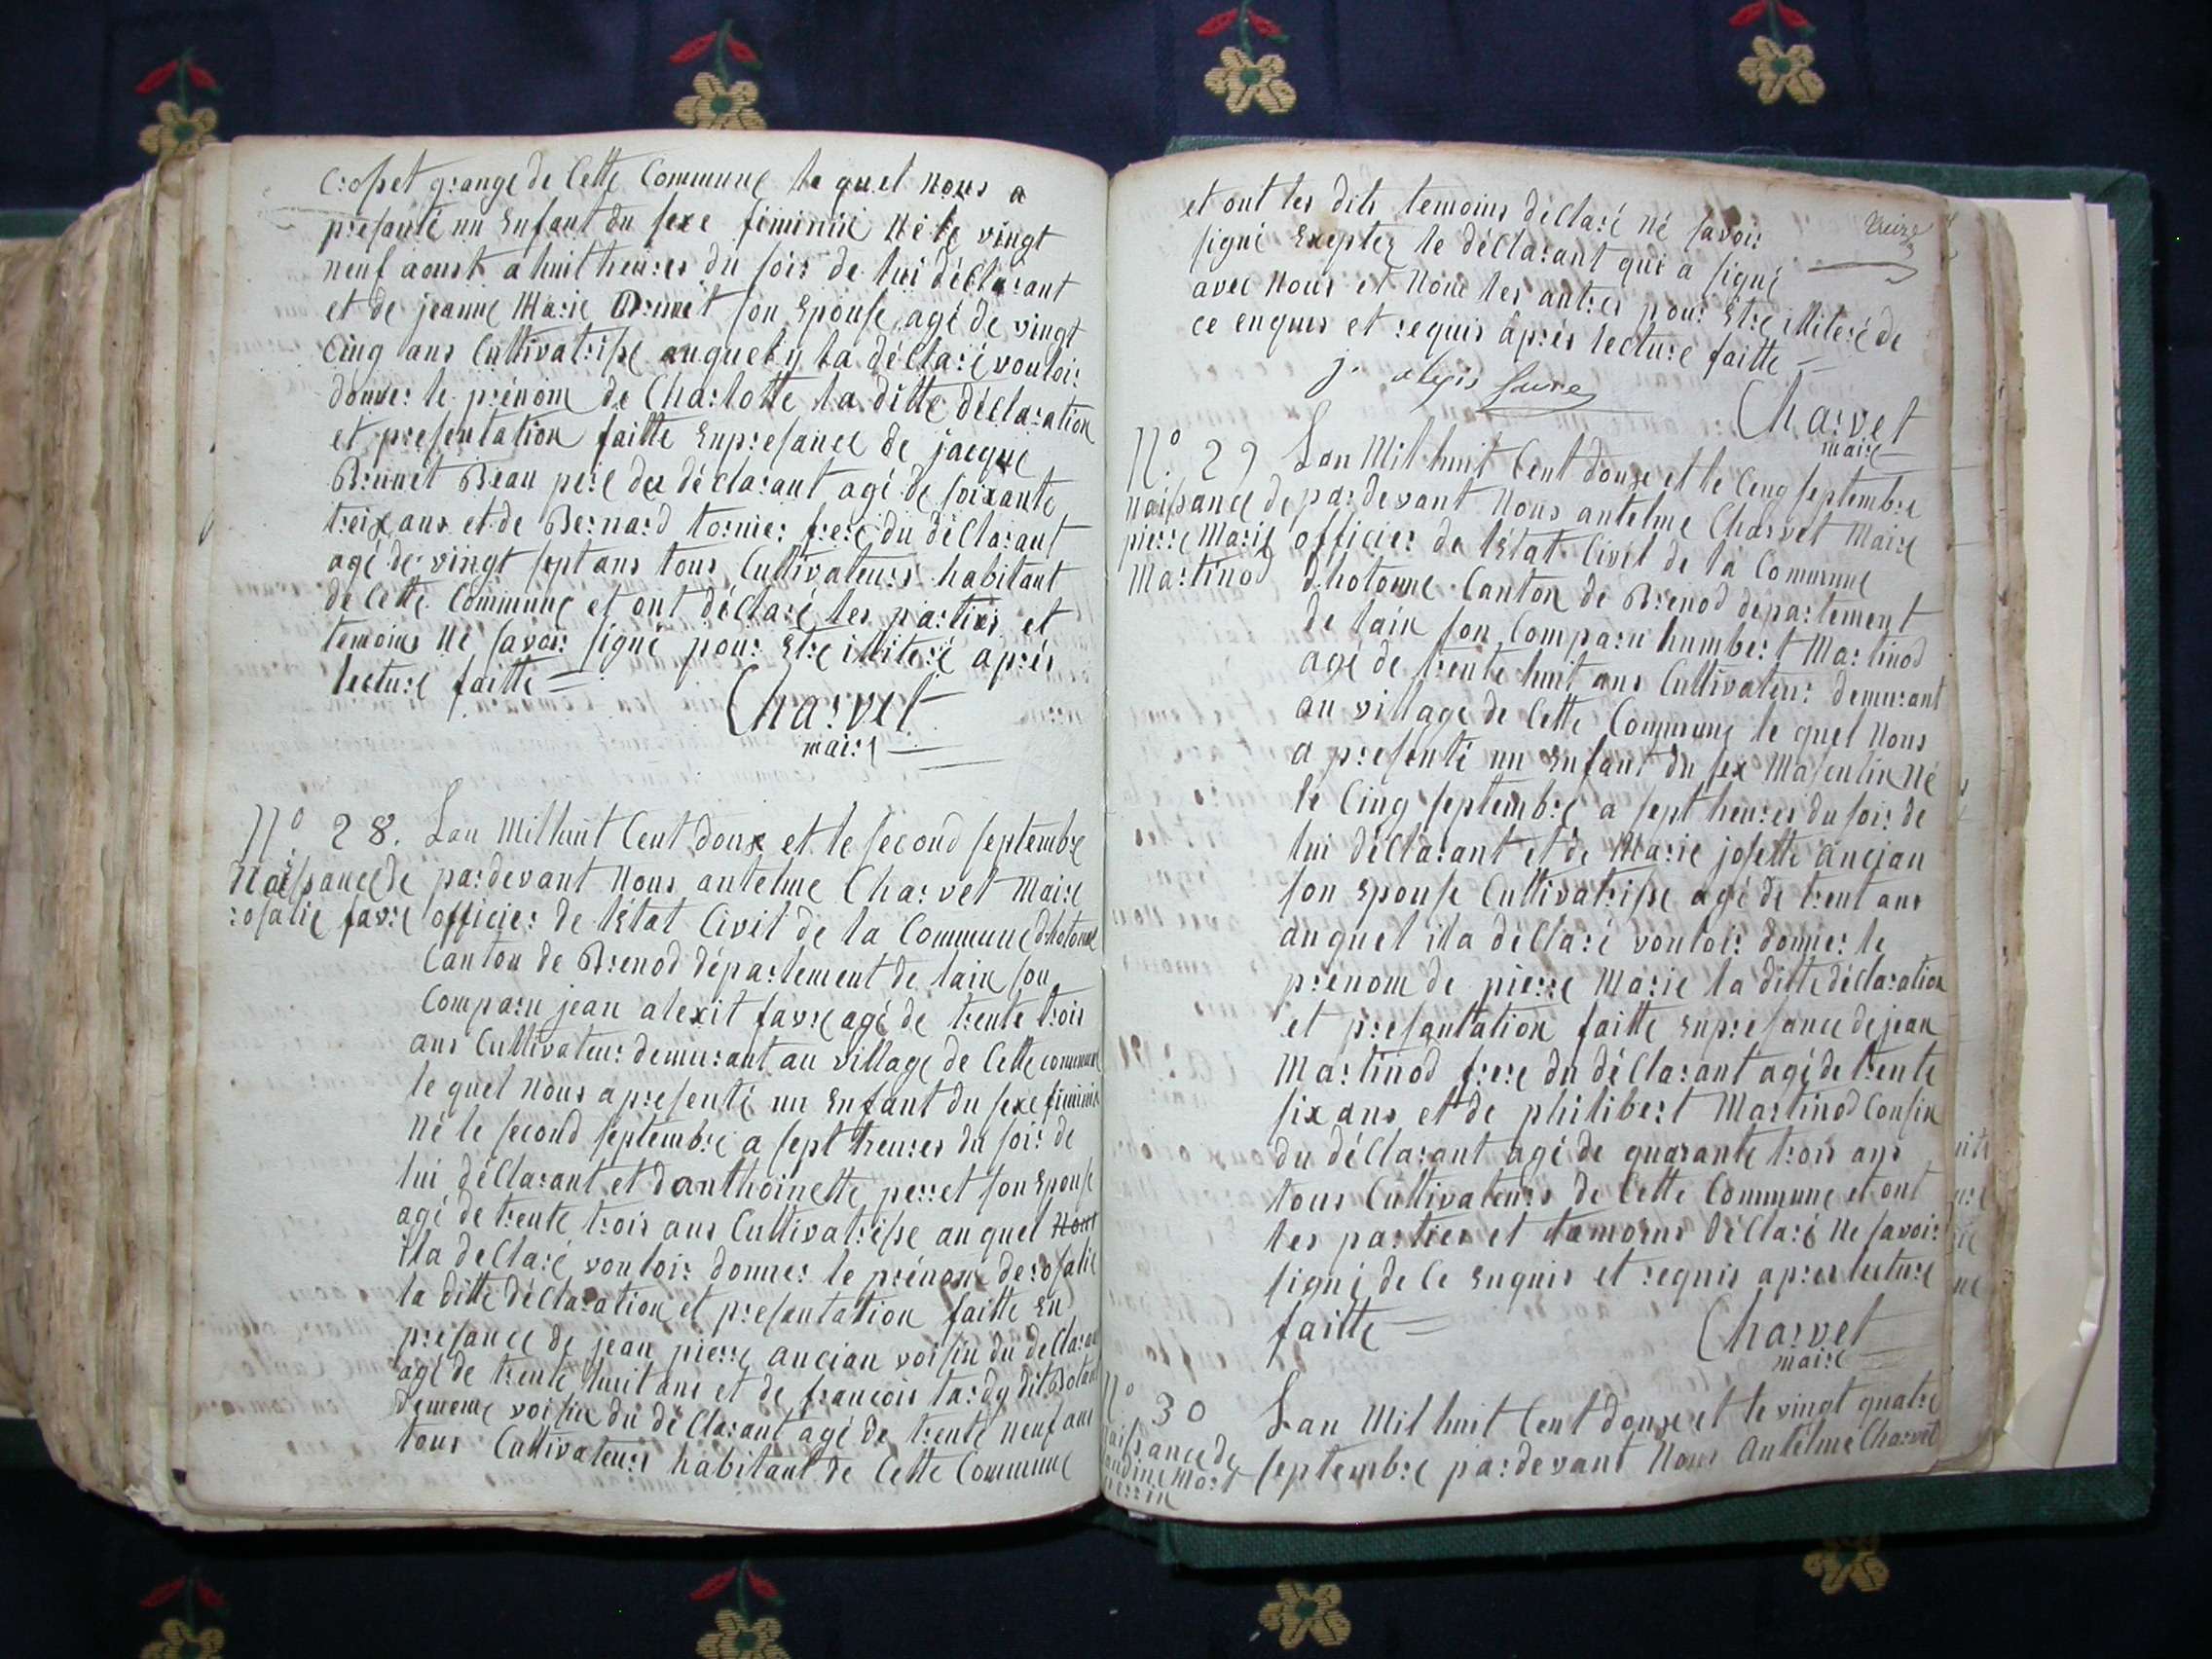 Crosset grange de Cette Commune le quel nous a
présanté un Enfant du sexe féminin Né le vingt
neuf aoust a huit heures du soir de lui déclarant
et de jeanne Marie Brunet son Epouse agé de vingt
Cinq ans Cultivatrisse auquel y la déclaré vouloir
donner le prénom de Charlotte la ditte déclaration
et presentation faitte Enpresance de jacque
Brunet Beau pere du déclarant agé de soixante
treix ans et de Bernard tornier frere du déclarant
agé de vingt sept ans tous Cultivateurs habitant
de Cette Commune et ont déclaré les parties et
temoins Né savoir signé pour Etre illiteré aprés
lecture faitte =
Charvet
maire
N.º 28. Lan Mil huit Cent douze et le second septembre
Naissance de pardevant Nous antelme Charvet Maire
rosalie favre officier de l'Etat Civil de la Commune dhotonne
Canton de Brenod département de lain son
Comparu jean alexit favre agé de trente trois
ans Cultivateur demurant au village de Cette commune
le quel nous a presenté un Enfant du sexe féminin
né le second septémbre a sept heures du soir de
lui déclarant et d'anthoinette perret son Epouse
agé de trente trois ans Cultivatrisse auquel Nous
il a déclaré vouloir donner le prénom de rosalie
la ditte déclaration et presentation faitte En
presance de jean pierre ancian voisin du declarant
agé de trente huit ans et de francois tardy dit
demême voisin du déclarant agé de trente neuf ans
tous Cultivateurs habitant de Cette Commune
et ont les dits temoins déclaré né savoir
signé Exeptez le déclarant qui a signé
avec Nous et Nom les autres pour Etre illiteré de
ce enquis et requis âprés lecture faitte =
j. alexis favre
Charvet
maire
N.º 29 Lan Mil huit Cent douze et le Cinq septembre
Naissance de pardevant Nous antelme Charvet Maire
pierre Marie officier de l'Etat Civil de la Commune
Martinod dhotonne Canton de Brenod département
de lain son Comparu humbert Martinod
agé de trente huit ans Cultivateur demurant
au village de Cette Commune le quel Nous
a presenté un Enfant du sex Masculin Né
le Cinq septembre a sept heures du soir de
lui déclarant et de Marie josette Ancian
son Epouse Cultivatrisse agé de trent ans
auquel il a déclaré vouloir donner le
prenom de pierre Marie la ditte déclaration
et presantation faitte Enpresance de jean
Martinod frere du déclarant agé de trente
six ans et de philibert Martinod Cousin
du déclarant agé de quarante trois ans
tous Cultivateurs de Cette Commune et ont
les parties et tamoins déclaré Ne savoir
signé de Ce Enquis et requis apres lecture
faitte =
Charvet
maire
Nº 30 Lan Mil huit Cent douze et le vingt quatre
Naissance de septembre pardevant Nous Antelme Charvet